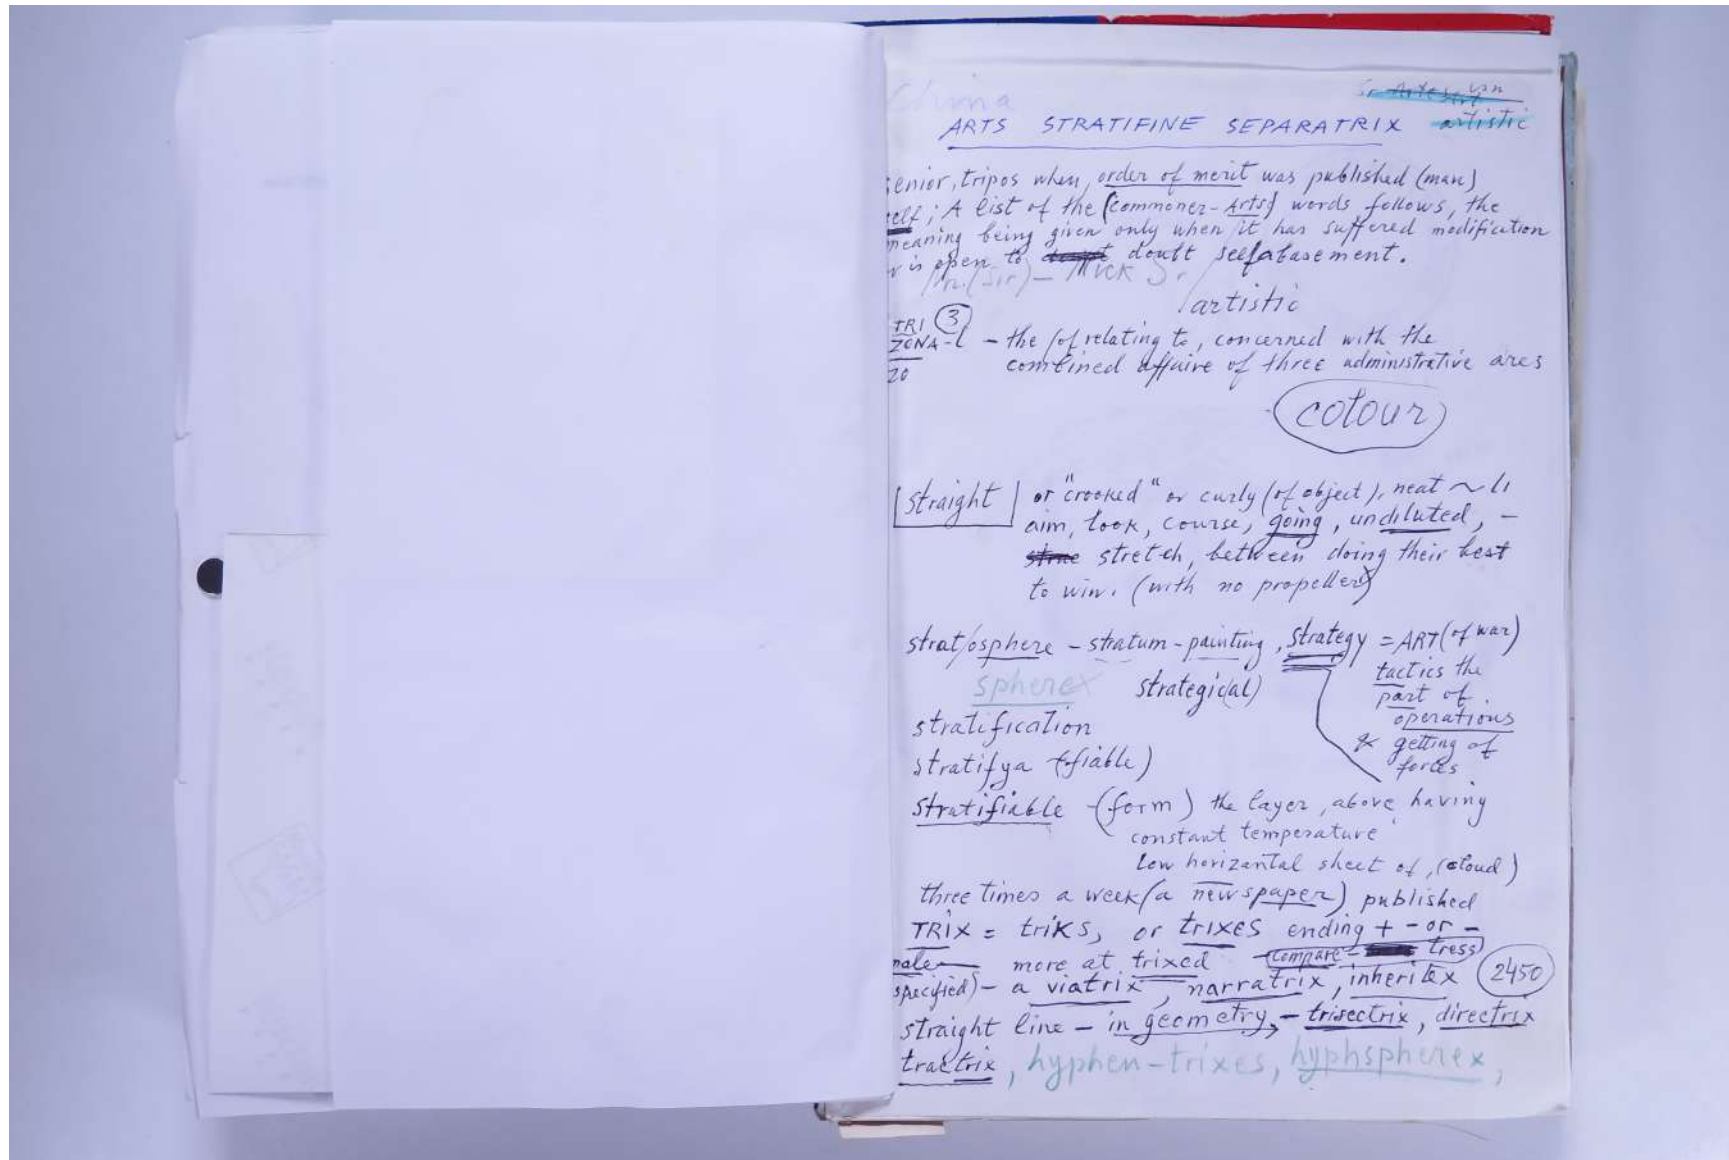 China
artistic
ARTS STRATIFINE SEPARATRIX
senior, tripos when, order of merit was published (man)
self; A list of the (commoner-Arts) words follows, the
meaning being given only when it has suffered modification
r is open to doubt selfabasement.
(Sir) –
artistic
TRI 3
ZONA-l – the (of relating to, concerned with the
20 combined affaire of three administrative ares
colour
straight or "crooked" or curly (of object), neat ~
aim, look, course, going, undiluted, –
stretch, between doing their best
to win. (with no propeller)
strat/osphere – stratum-painting, strategy = ART (of war)
spherex strategic(al) tactics the
part of
stratification operations
& getting of
stratifya (fiable) forces.
stratifiable – (form) the layer, above having
constant temperature
Low horizantal sheet of, (cloud)
three times a week (a newspaper) published
TRIX = triks, or trixes ending + – or –
male – more at trixed – compare – tress
specified) – a viatrix, narratrix, inheritex 2450
straight line – in geometry, – trisectrix, directrix
tractrix, hyphen-trixes, hyphspherex,